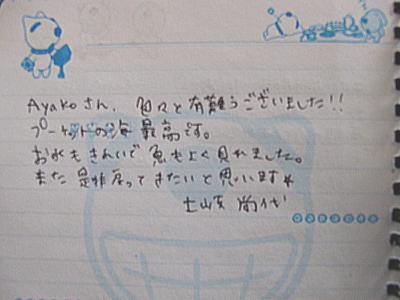 Ayakoさん、色々と有難うございました!!
プーケットの海最高です。
お水もきれいで魚もよく見れました。
また是非戻ってきたいと思います
土山支 尚代